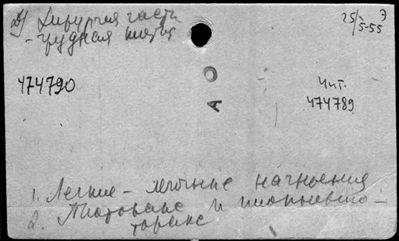 а) Хирургия части
- грудная клетка
25/5-55
Э
474790
А О
Чит.
474789
1. Легкие - легочные нагноения
2. Пиоторакс и пиопневмо-
торакс